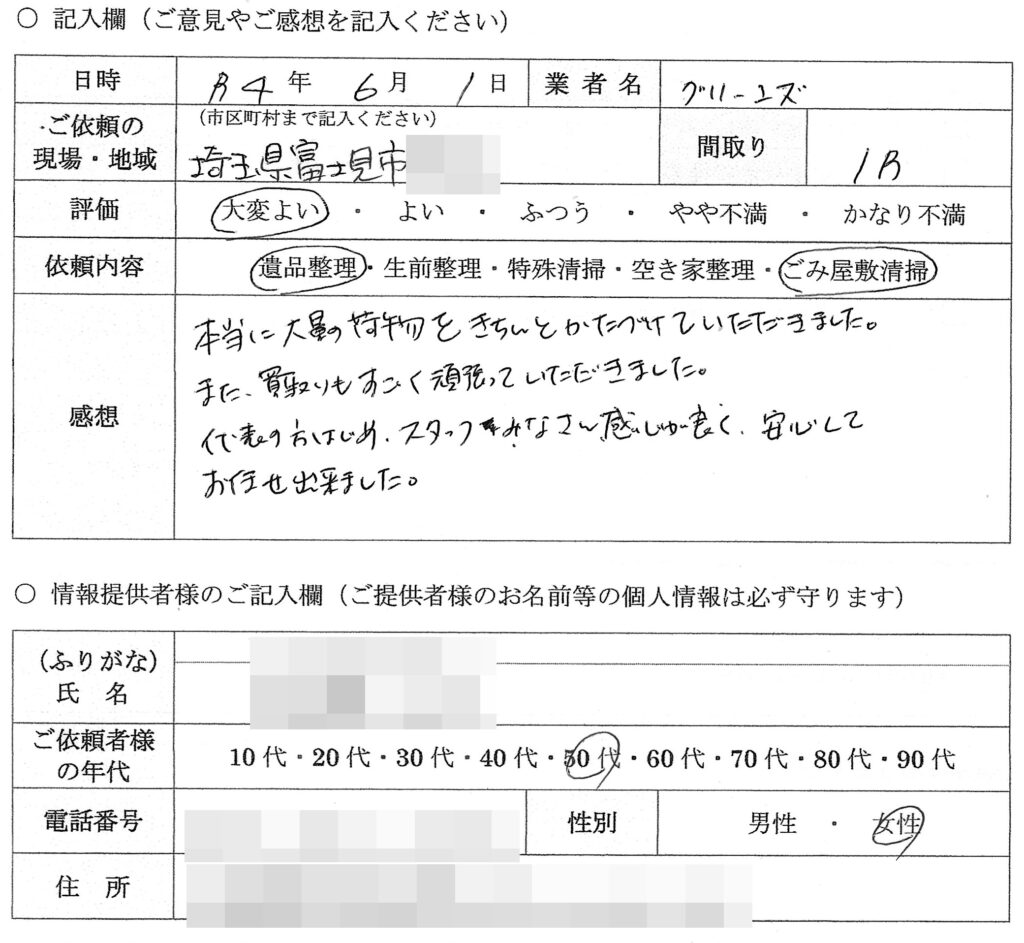 ○ 記入欄（ご意見やご感想を記入ください）
日時 R4年 6月 1日 業者名 グリーンズ
・ご依頼の現場・地域 （市区町村まで記入ください） 埼玉県富士見市 間取り 1R
評価 大変よい ・ よい ・ ふつう ・ やや不満 ・ かなり不満
依頼内容 遺品整理・生前整理・特殊清掃・空き家整理・ごみ屋敷清掃
感想
本当に大量の荷物をきちんとかたづけていただきました。
また、買取りもすごく頑張っていただきました。
代表の方はじめ、スタッフみなさん感じが良く、安心して
お任せ出来ました。
○ 情報提供者様のご記入欄（ご提供者様のお名前等の個人情報は必ず守ります）
（ふりがな）
氏 名
ご依頼者様の年代 10代・20代・30代・40代・50代・60代・70代・80代・90代
電話番号 性別 男性 ・ 女性
住 所